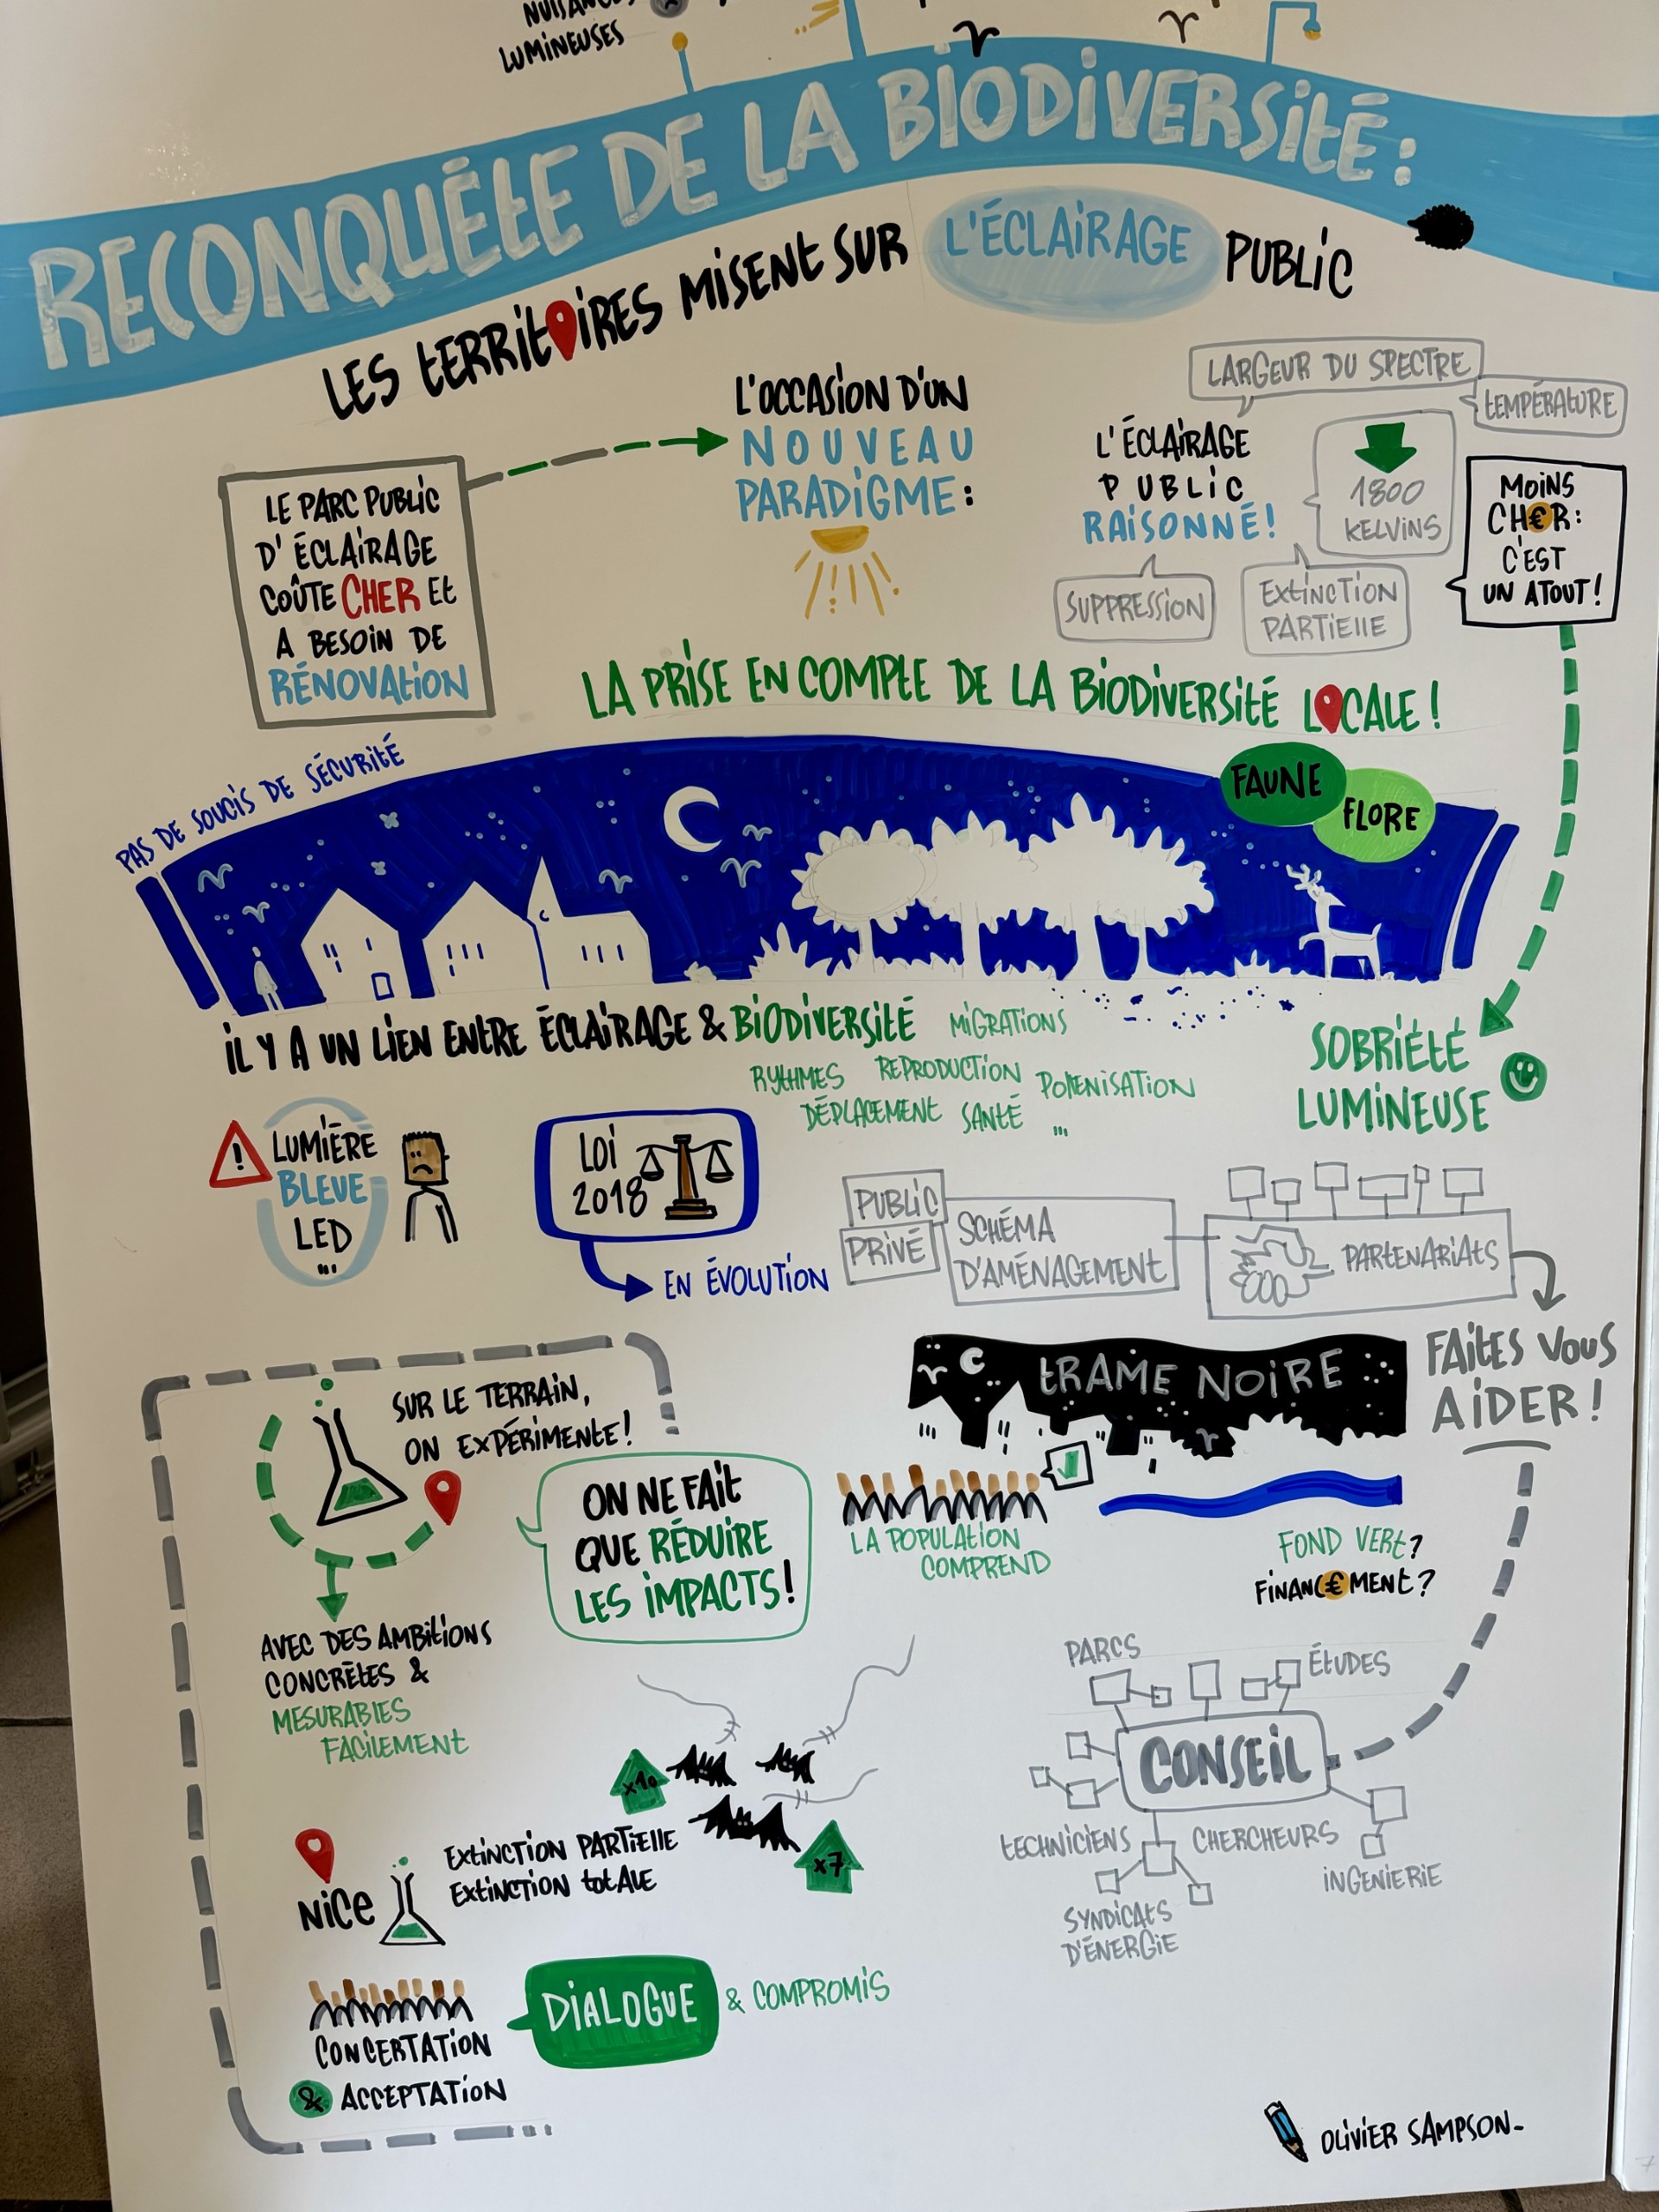 NUISANCES
LUMINEUSES
RECONQUÊTE DE LA BIODIVERSITÉ :
LES TERRITOIRES MISENT SUR L'ÉCLAIRAGE PUBLIC
LE PARC PUBLIC
D'ÉCLAIRAGE
COÛTE CHER ET
A BESOIN DE
RÉNOVATION
L'OCCASION D'UN
NOUVEAU
PARADIGME :
LARGEUR DU SPECTRE
TEMPÉRATURE
L'ÉCLAIRAGE
PUBLIC
RAISONNÉ !
1800
KELVINS
MOINS
CH€R :
C'EST
UN ATOUT !
SUPPRESSION
EXTINCTION
PARTIELLE
LA PRISE EN COMPTE DE LA BIODIVERSITÉ LOCALE !
PAS DE SOUCIS DE SÉCURITÉ
FAUNE
FLORE
IL Y A UN LIEN ENTRE ÉCLAIRAGE & BIODIVERSITÉ
MIGRATIONS
RYTHMES REPRODUCTION POLLENISATION
DÉPLACEMENT SANTÉ ...
SOBRIÉTÉ
LUMINEUSE
!
LUMIÈRE
BLEUE
LED
...
LOI
2018
EN ÉVOLUTION
PUBLIC
PRIVÉ
SCHÉMA
D'AMÉNAGEMENT
PARTENARIATS
FAITES VOUS
AIDER !
TRAME NOIRE
SUR LE TERRAIN,
ON EXPÉRIMENTE !
ON NE FAIT
QUE RÉDUIRE
LES IMPACTS !
LA POPULATION
COMPREND
FOND VERT ?
FINANC€MENT ?
AVEC DES AMBITIONS
CONCRÈTES &
MESURABLES
FACILEMENT
PARCS
ÉTUDES
CONSEIL
TECHNICIENS
CHERCHEURS
INGENIERIE
SYNDICATS
D'ÉNERGIE
x10
x7
NICE
EXTINCTION PARTIELLE
EXTINCTION TOTALE
CONCERTATION
& ACCEPTATION
DIALOGUE
& COMPROMIS
OLIVIER SAMPSON-